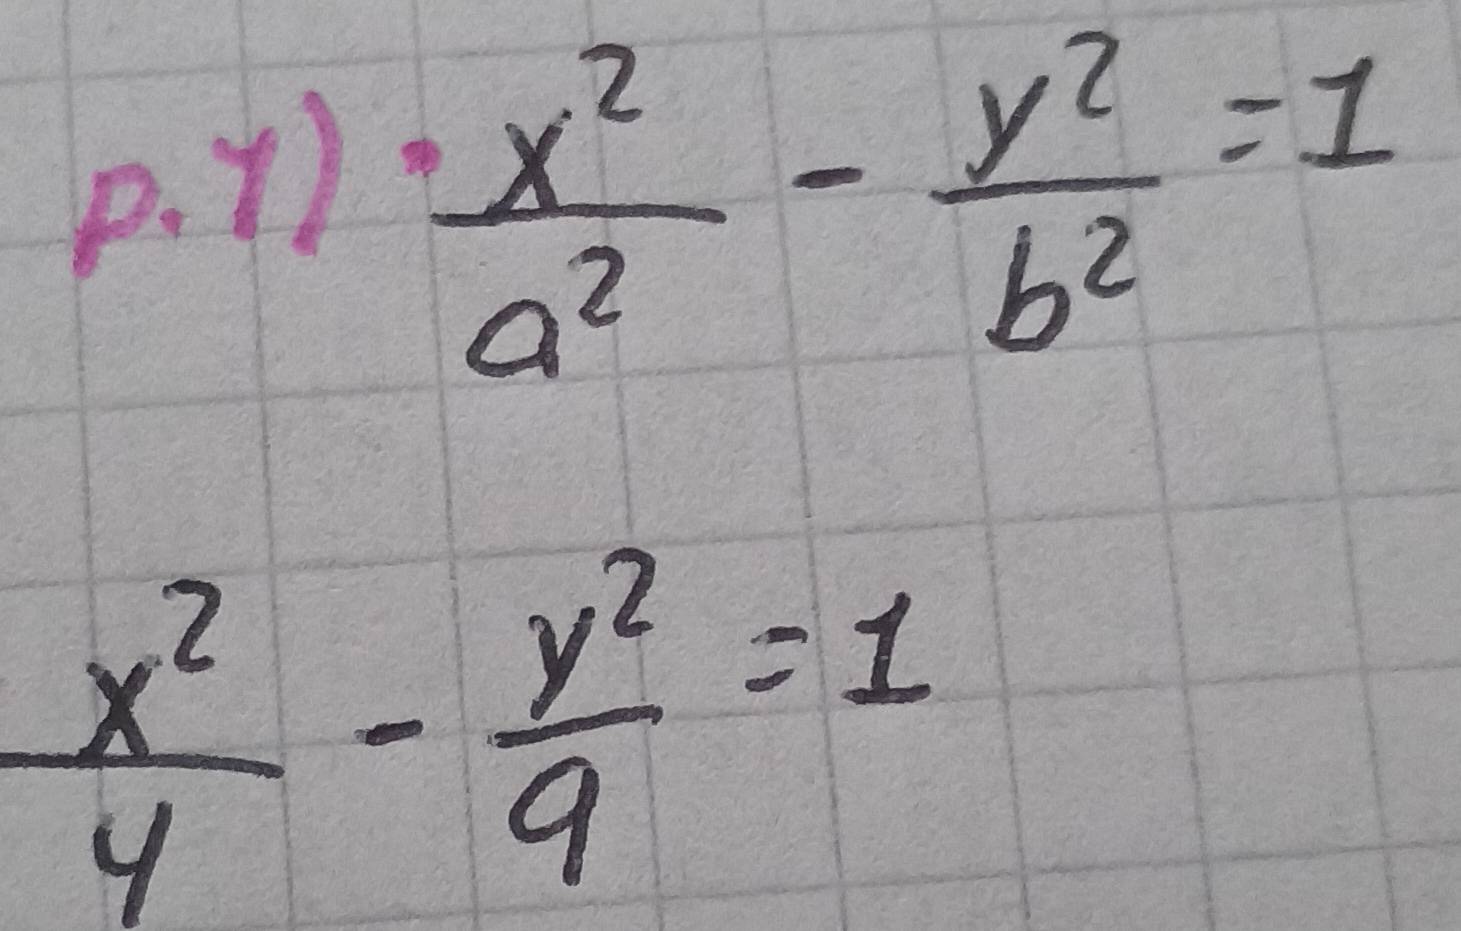 p.4) · x²/a² - y²/b² = 1
x²/4 - y²/9 = 1